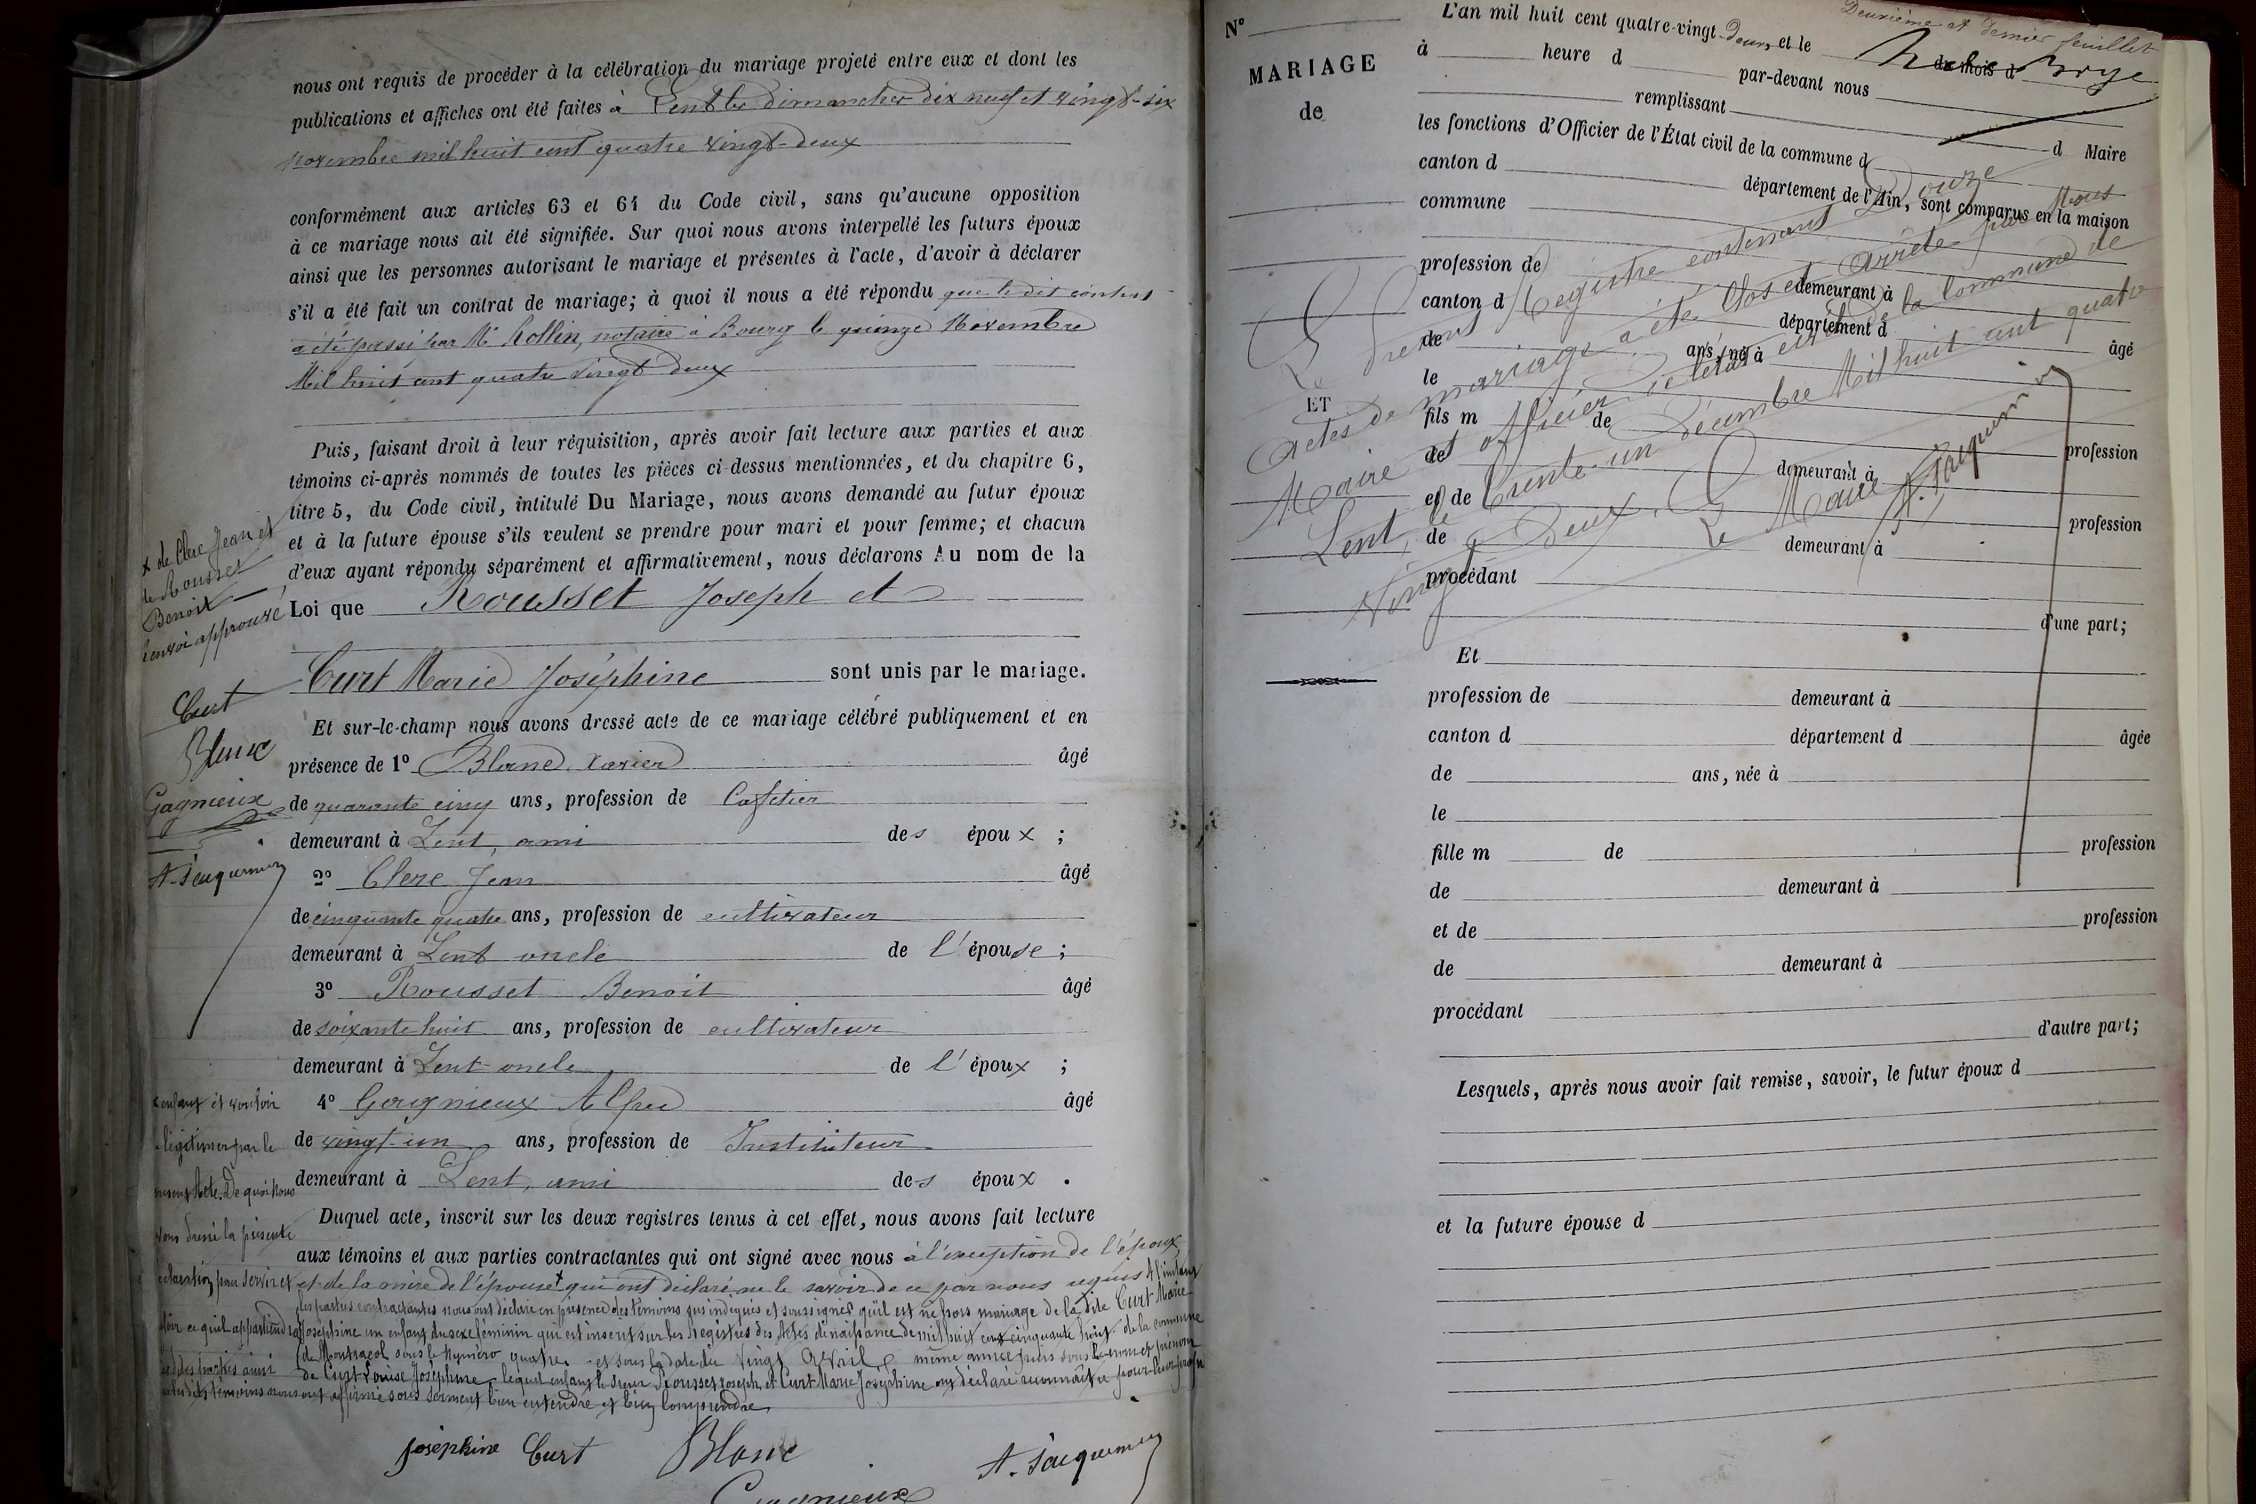 nous ont requis de procéder à la célébration du mariage projeté entre eux et dont les
publications et affiches ont été faites à Lent les dimanches dix neuf et vingt-six
novembre mil huit cent quatre vingt-deux
conformément aux articles 63 et 64 du Code civil, sans qu'aucune opposition
à ce mariage nous ait été signifiée. Sur quoi nous avons interpellé les futurs époux
ainsi que les personnes autorisant le mariage et présentes à l'acte, d'avoir à déclarer
s'il a été fait un contrat de mariage; à quoi il nous a été répondu que le dit contrat
a été passé par Me Rollin, notaire à Bourg le quinze Novembre
Mil huit cent quatre vingt deux
Puis, faisant droit à leur réquisition, après avoir fait lecture aux parties et aux
témoins ci-après nommés de toutes les pièces ci-dessus mentionnées, et du chapitre 6,
titre 5, du Code civil, intitulé Du Mariage, nous avons demandé au futur époux
et à la future épouse s'ils veulent se prendre pour mari et pour femme; et chacun
d'eux ayant répondu séparément et affirmativement, nous déclarons Au nom de la
Loi que Rousset Joseph et
Curt Marie Joséphine sont unis par le mariage.
Et sur-le-champ nous avons dressé acte de ce mariage célébré publiquement et en
présence de 1° Blanc Xavier âgé
de quarante cinq ans, profession de Cafetier
demeurant à Lent, ami des époux ;
2° Clerc Jean âgé
de cinquante quatre ans, profession de cultivateur
demeurant à Lent oncle de l'épouse ;
3° Rousset Benoit âgé
de soixante huit ans, profession de cultivateur
demeurant à Lent oncle de l'époux ;
4° Gagnieux Alfred âgé
de vingt-un ans, profession de Instituteur
demeurant à Lent, ami des époux .
Duquel acte, inscrit sur les deux registres tenus à cet effet, nous avons fait lecture
aux témoins et aux parties contractantes qui ont signé avec nous à l'exception de l'époux
et de la mère de l'épouse x qui ont déclaré ne le savoir de ce par nous requis A l'instant
les parties contractantes nous ont déclaré en présence des témoins sus indiqués et soussignés qu'il est né hors mariage de la dite Curt Marie
Joséphine un enfant du sexe féminin qui est inscrit sur les Registres des Actes de naissance de mil huit cent cinquante huit de la commune
de Montracol sous le numéro quatre et sous la date du vingt Avril même année sous le nom et prénom
de Curt Louise Joséphine, lequel enfant le sieur Rousset Joseph et Curt Marie Joséphine ont déclaré reconnaître pour leur
x de Clerc Jean et
de Rousset
Benoit
renvoi approuvé
Curt
Blanc
Gagnieux
A. Jacquemin
enfant et vouloir
légitimer par le
présent Acte. De quoi Nous
avons dressé la présente
déclaration pour servir et
valoir ce qu'il appartiendra
les dites parties ainsi
que les dits témoins nous ont affirmé sous serment bien entendre et bien comprendre
Joséphine Curt Blanc
Gagnieux
A. Jacquemin
Deuxième et dernier feuillet
N°
MARIAGE
de
ET
L'an mil huit cent quatre-vingt-deux, et le du mois d
à heure d par-devant nous
remplissant
les fonctions d'Officier de l'État civil de la commune d d Maire
canton d département de l'Ain, sont comparus en la maison
commune
profession de demeurant à
canton d département d
de ans, né à âgé
le
fils m de profession
de demeurant à
et de profession
de demeurant à
procédant
d'une part;
Le présent Registre contenant Douze
Actes de mariage a été Clos et Arrêté par Nous
Maire et officier de l'état civil de la Commune de
Lent, le trente-un Décembre Mil huit cent quatre
Vingt Deux.
Le Maire
A. Jacquemin
Et
profession de demeurant à
canton d département d âgée
de ans, née à
le
fille m de profession
de demeurant à
et de profession
de demeurant à
procédant
d'autre part;
Lesquels, après nous avoir fait remise, savoir, le futur époux d
et la future épouse d